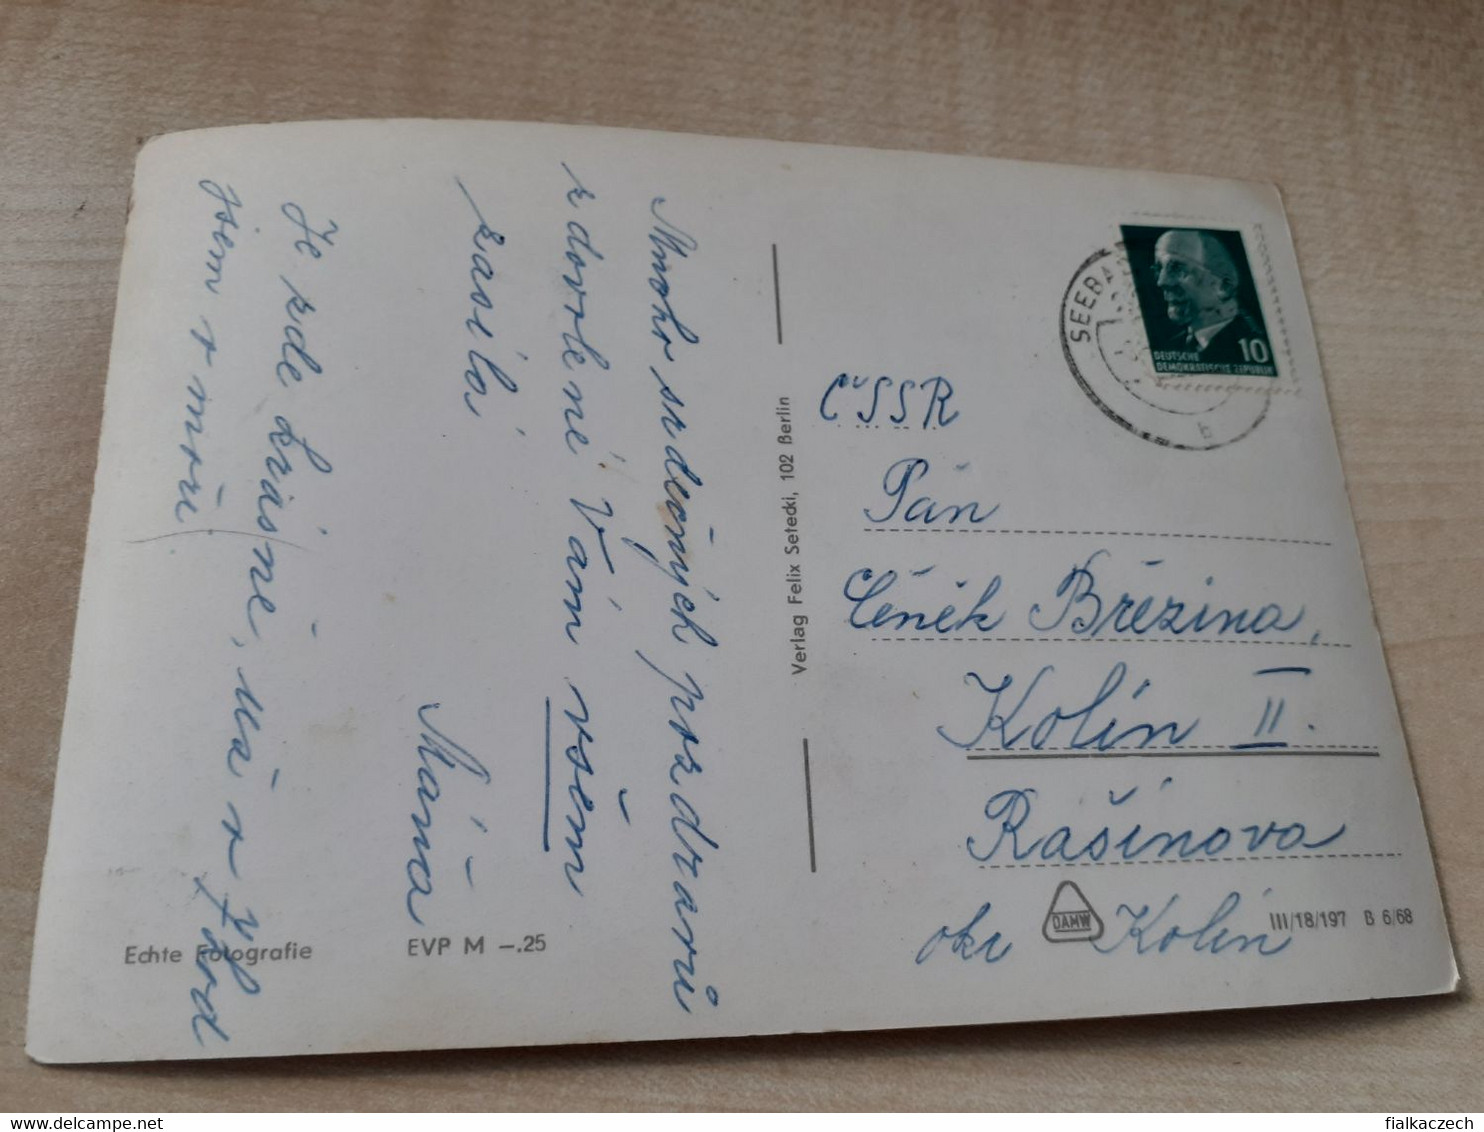 Mnoho srdečných pozdravů
z dovolené Vám všem
zasílá
Máňa
Je zde krásně, už v
jsem v moři
Echte Fotografie
EVP M –.25
Verlag Felix Setecki, 102 Berlin
SEEBA
10
DEUTSCHE
DEMOKRATISCHE REPUBLIK
b
ČSSR
Pán
Čeněk Březina,
Kolín II.
Rašínova
okr Kolín
DAMW
III/18/197 B 6/68
www.delcampe.net
fialkaczech